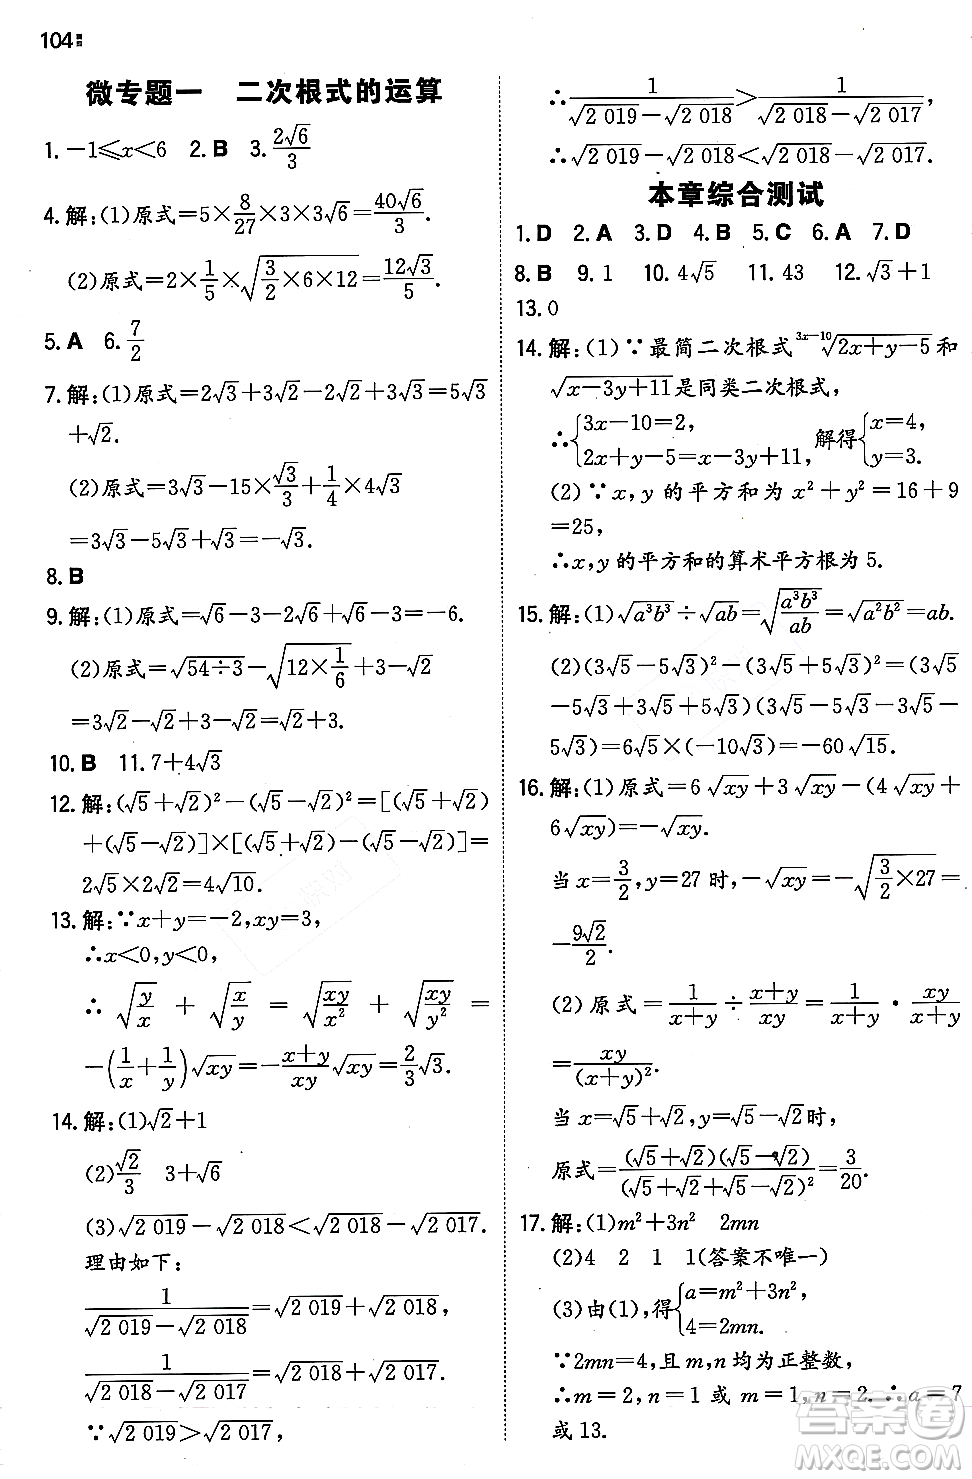 104
微专题一 二次根式的运算
1. -1≤x<6 2. B 3. 2√6/3
4. 解:(1)原式=5×8/27×3×3√6=40√6/3.
(2)原式=2×1/5×√(3/2×6×12)=12√3/5.
5. A 6. 7/2
7. 解:(1)原式=2√3+3√2-2√2+3√3=5√3
+√2.
(2)原式=3√3-15×√3/3+1/4×4√3
=3√3-5√3+√3=-√3.
8. B
9. 解:(1)原式=√6-3-2√6+√6-3=-6.
(2)原式=√(54÷3)-√(12×1/6)+3-√2
=3√2-√2+3-√2=√2+3.
10. B 11. 7+4√3
12. 解:(√5+√2)²-(√5-√2)²=[(√5+√2)
+(√5-√2)]×[(√5+√2)-(√5-√2)]=
2√5×2√2=4√10.
13. 解:∵x+y=-2,xy=3,
∴x<0,y<0,
∴√(y/x)+√(x/y)=√(xy/x²)+√(xy/y²)=
-(1/x+1/y)√xy=-(x+y)/xy √xy=2/3 √3.
14. 解:(1)√2+1
(2)√2/3 3+√6
(3)√2 019-√2 018<√2 018-√2 017.
理由如下:
1/(√2 019-√2 018)=√2 019+√2 018,
1/(√2 018-√2 017)=√2 018+√2 017.
∵√2 019>√2 017,
∴1/(√2 019-√2 018)>1/(√2 018-√2 017),
∴√2 019-√2 018<√2 018-√2 017.
本章综合测试
1. D 2. A 3. D 4. B 5. C 6. A 7. D
8. B 9. 1 10. 4√5 11. 43 12. √3+1
13. 0
14. 解:(1)∵最简二次根式 ³ˣ⁻¹⁰√(2x+y-5) 和
√(x-3y+11)是同类二次根式,
∴{3x-10=2, 2x+y-5=x-3y+11, 解得{x=4, y=3.
(2)∵x,y的平方和为 x²+y²=16+9
=25,
∴x,y的平方和的算术平方根为 5.
15. 解:(1)√(a³b³)÷√ab=√(a³b³/ab)=√(a²b²)=ab.
(2)(3√5-5√3)²-(3√5+5√3)²=(3√5
-5√3+3√5+5√3)(3√5-5√3-3√5-
5√3)=6√5×(-10√3)=-60√15.
16. 解:(1)原式=6√xy+3√xy-(4√xy+
6√xy)=-√xy.
当 x=3/2,y=27 时,-√xy=-√(3/2×27)=
-9√2/2.
(2)原式=1/(x+y)÷(x+y)/xy=1/(x+y)·xy/(x+y)
=xy/(x+y)².
当 x=√5+√2,y=√5-√2时,
原式=(√5+√2)(√5-√2)/(√5+√2+√5-√2)²=3/20.
17. 解:(1)m²+3n² 2mn
(2)4 2 1 1(答案不唯一)
(3)由(1),得{a=m²+3n², 4=2mn.
∵2mn=4,且 m,n 均为正整数,
∴m=2,n=1 或 m=1,n=2. ∴a=7
或 13.
答案圈
MXQE.COM